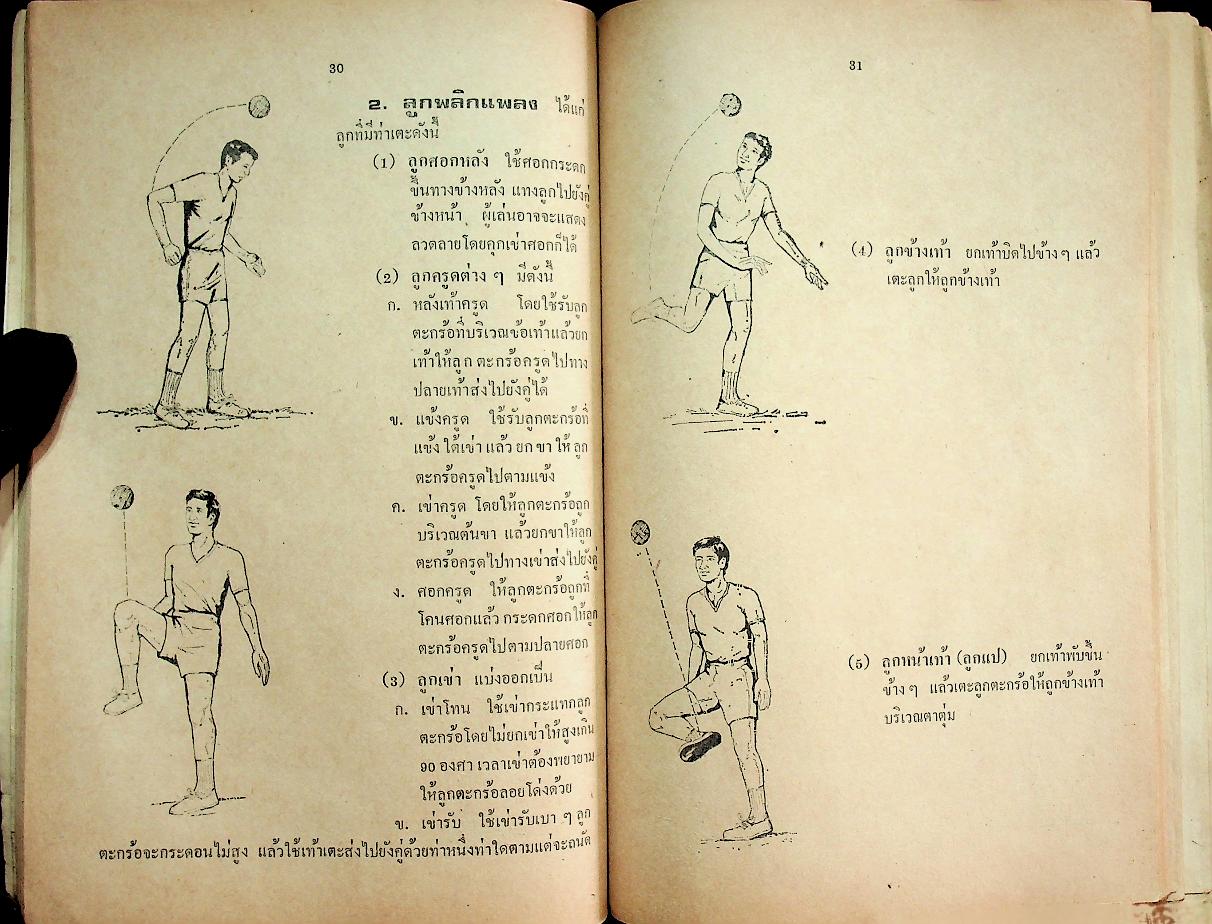 30
๒. ลูกพลิกแพลง ได้แก่
ลูกที่มีท่าเตะดังนี้
(1) ลูกศอกหลัง ใช้ศอกกระดก
ขึ้นทางข้างหลัง แทงลูกไปยังคู่
ข้างหน้า ผู้เล่นอาจจะแสดง
ลวดลายโดยคุกเข่าศอกก็ได้
(2) ลูกครูดต่าง ๆ มีดังนี้
ก. หลังเท้าครูด โดยใช้รับลูก
ตะกร้อที่บริเวณข้อเท้าแล้วยก
เท้าให้ลูกตะกร้อครูดไปทาง
ปลายเท้าส่งไปยังคู่ได้
ข. แข้งครูด ใช้รับลูกตะกร้อที่
แข้งใต้เข่า แล้วยกขาให้ลูก
ตะกร้อครูดไปตามแข้ง
ค. เข่าครูด โดยให้ลูกตะกร้อถูก
บริเวณต้นขา แล้วยกขาให้ลูก
ตะกร้อครูดไปทางเข่าส่งไปยังคู่
ง. ศอกครูด ให้ลูกตะกร้อถูกที่
โคนศอกแล้วกระดกศอกให้ลูก
ตะกร้อครูดไปตามปลายศอก
(3) ลูกเข่า แบ่งออกเป็น
ก. เข่าโทน ใช้เข่ากระแทกลูก
ตะกร้อโดยไม่ยกเข่าให้สูงเกิน
๙๐ องศา เวลาเข่าต้องพยายาม
ให้ลูกตะกร้อลอยโด่งด้วย
ข. เข่ารับ ใช้เข่ารับเบา ๆ ลูก
ตะกร้อจะกระดอนไม่สูง แล้วใช้เท้าเตะส่งไปยังคู่ด้วยท่าหนึ่งท่าใดตามแต่จะถนัด
31
(4) ลูกข้างเท้า ยกเท้าบิดไปข้าง ๆ แล้ว
เตะลูกให้ถูกข้างเท้า
(5) ลูกหน้าเท้า (ลูกแป) ยกเท้าพับขึ้น
ข้าง ๆ แล้วเตะลูกตะกร้อให้ถูกข้างเท้า
บริเวณตาตุ่ม